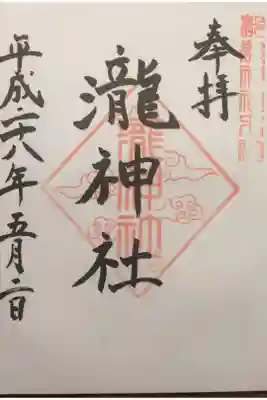 奉拝
瀧神社
平成二十八年五月二日